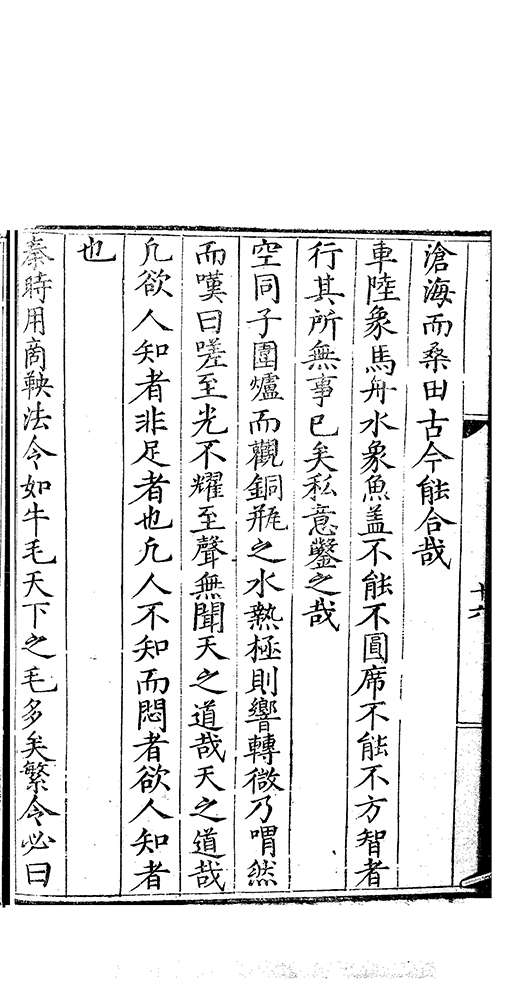 滄海而桑田古今能合哉
車陸象馬舟水象魚盖不能不圓席不能不方智者
行其所無事已矣私意鑿之哉
空同子圍爐而觀銅瓶之水熱極則響轉微乃喟然
而嘆曰嗟至光不耀至聲無聞天之道哉天之道哉
凢欲人知者非足者也凢人不知而悶者欲人知者
也
秦時用商鞅法令如牛毛天下之毛多矣繁令必曰
十六